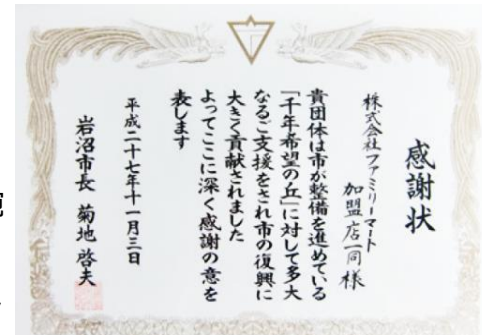 感謝状
株式会社ファミリーマート
加盟店一同様
貴団体は市が整備を進めている
「千年希望の丘」に対して多大
なるご支援をされ市の復興に
大きく貢献されました
よってここに深く感謝の意を
表します
平成二十七年十一月三日
岩沼市長 菊地啓夫